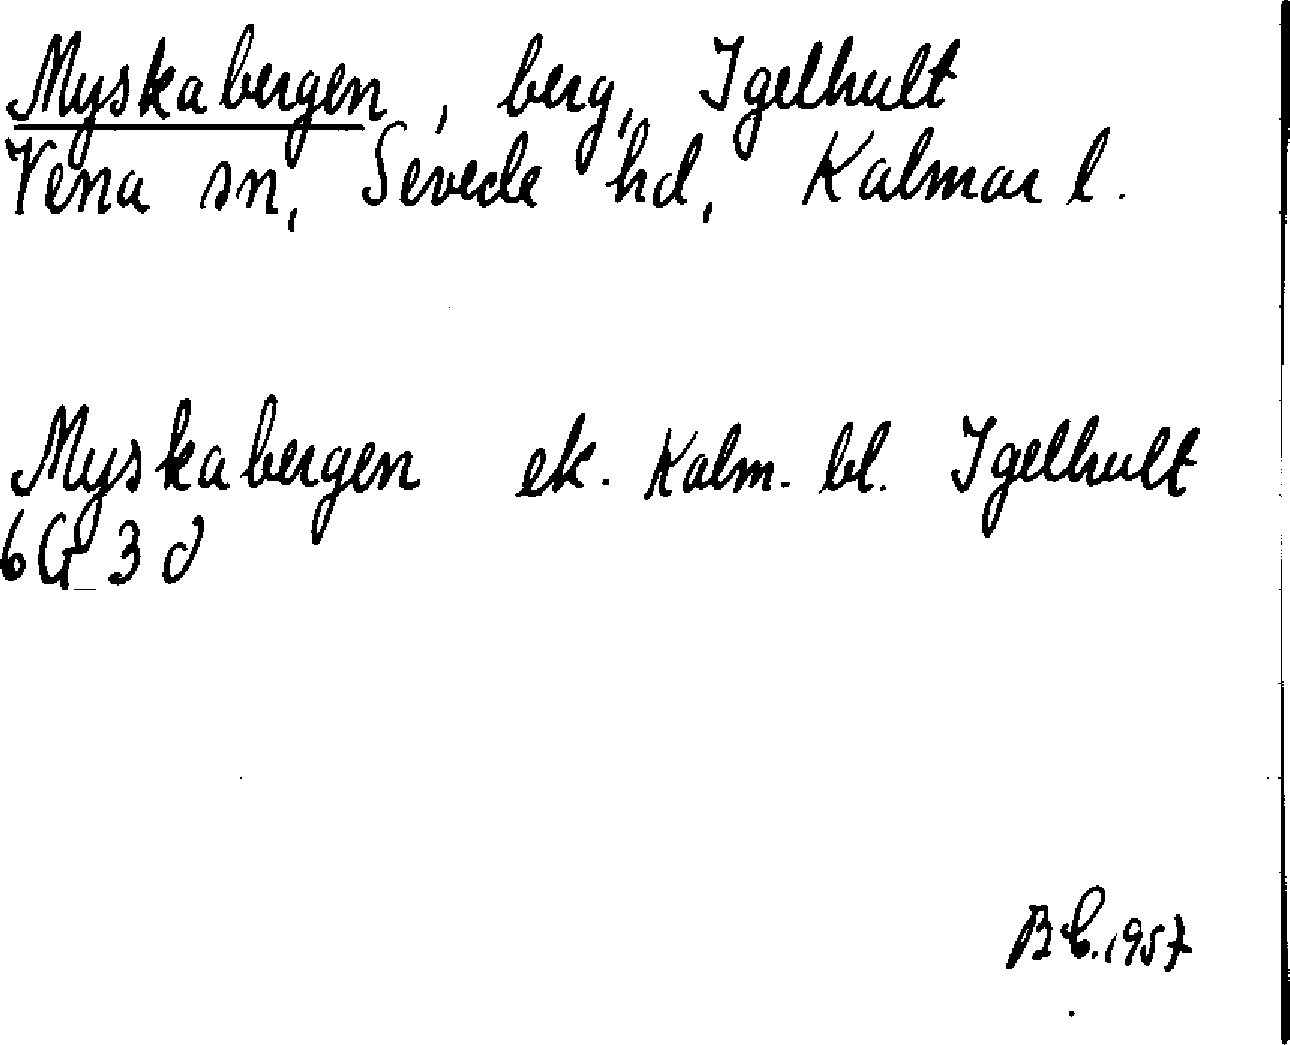 Myskabergen, berg, Igelhult
Vena sn, Sevede hd, Kalmar l.
Myskabergen ek. Kalm. bl. Igelhult
6G 3d
BE. 1957